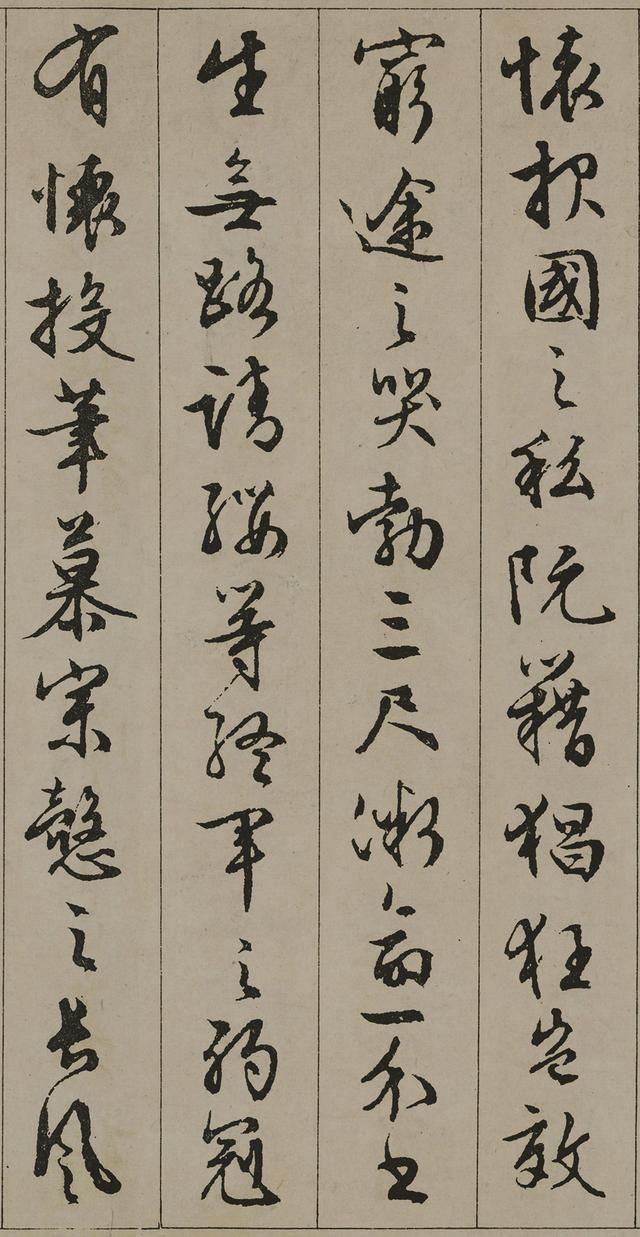 懷報國之私阮籍猖狂豈效
窮途之哭勃三尺微命一介書
生無路請纓等終軍之弱冠
有懷投筆慕宗愨之長風